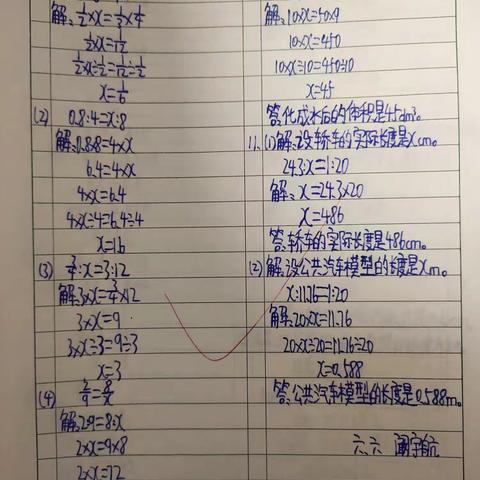 解:½×x=⅓×¼
½x=1/12
½×x÷½=1/12÷½
x=1/6
(2) 0.8:4=x:8
解:0.8×8=4×x
6.4=4×x
4×x=6.4
4×x÷4=6.4÷4
x=1.6
(3) ¾:x=3:12
解:3×x=¾×12
3×x=9
3×x÷3=9÷3
x=3
(4) 2/9=8/x
解:2:9=8:x
2×x=9×8
2×x=72
解:10×x=50×9
10×x=450
10×x÷10=450÷10
x=45
答:化成水后的体积是45dm³。
11.(1)解:设轿车的实际长度是xcm。
24.3:x=1:20
解:x=24.3×20
x=486
答:轿车的实际长度是486cm。
(2)解:设公共汽车模型的长度是xm。
x:11.76=1:20
解:20×x=11.76
20×x÷20=11.76÷20
x=0.588
答:公共汽车模型的长度是0.588m。
六、六 宇航